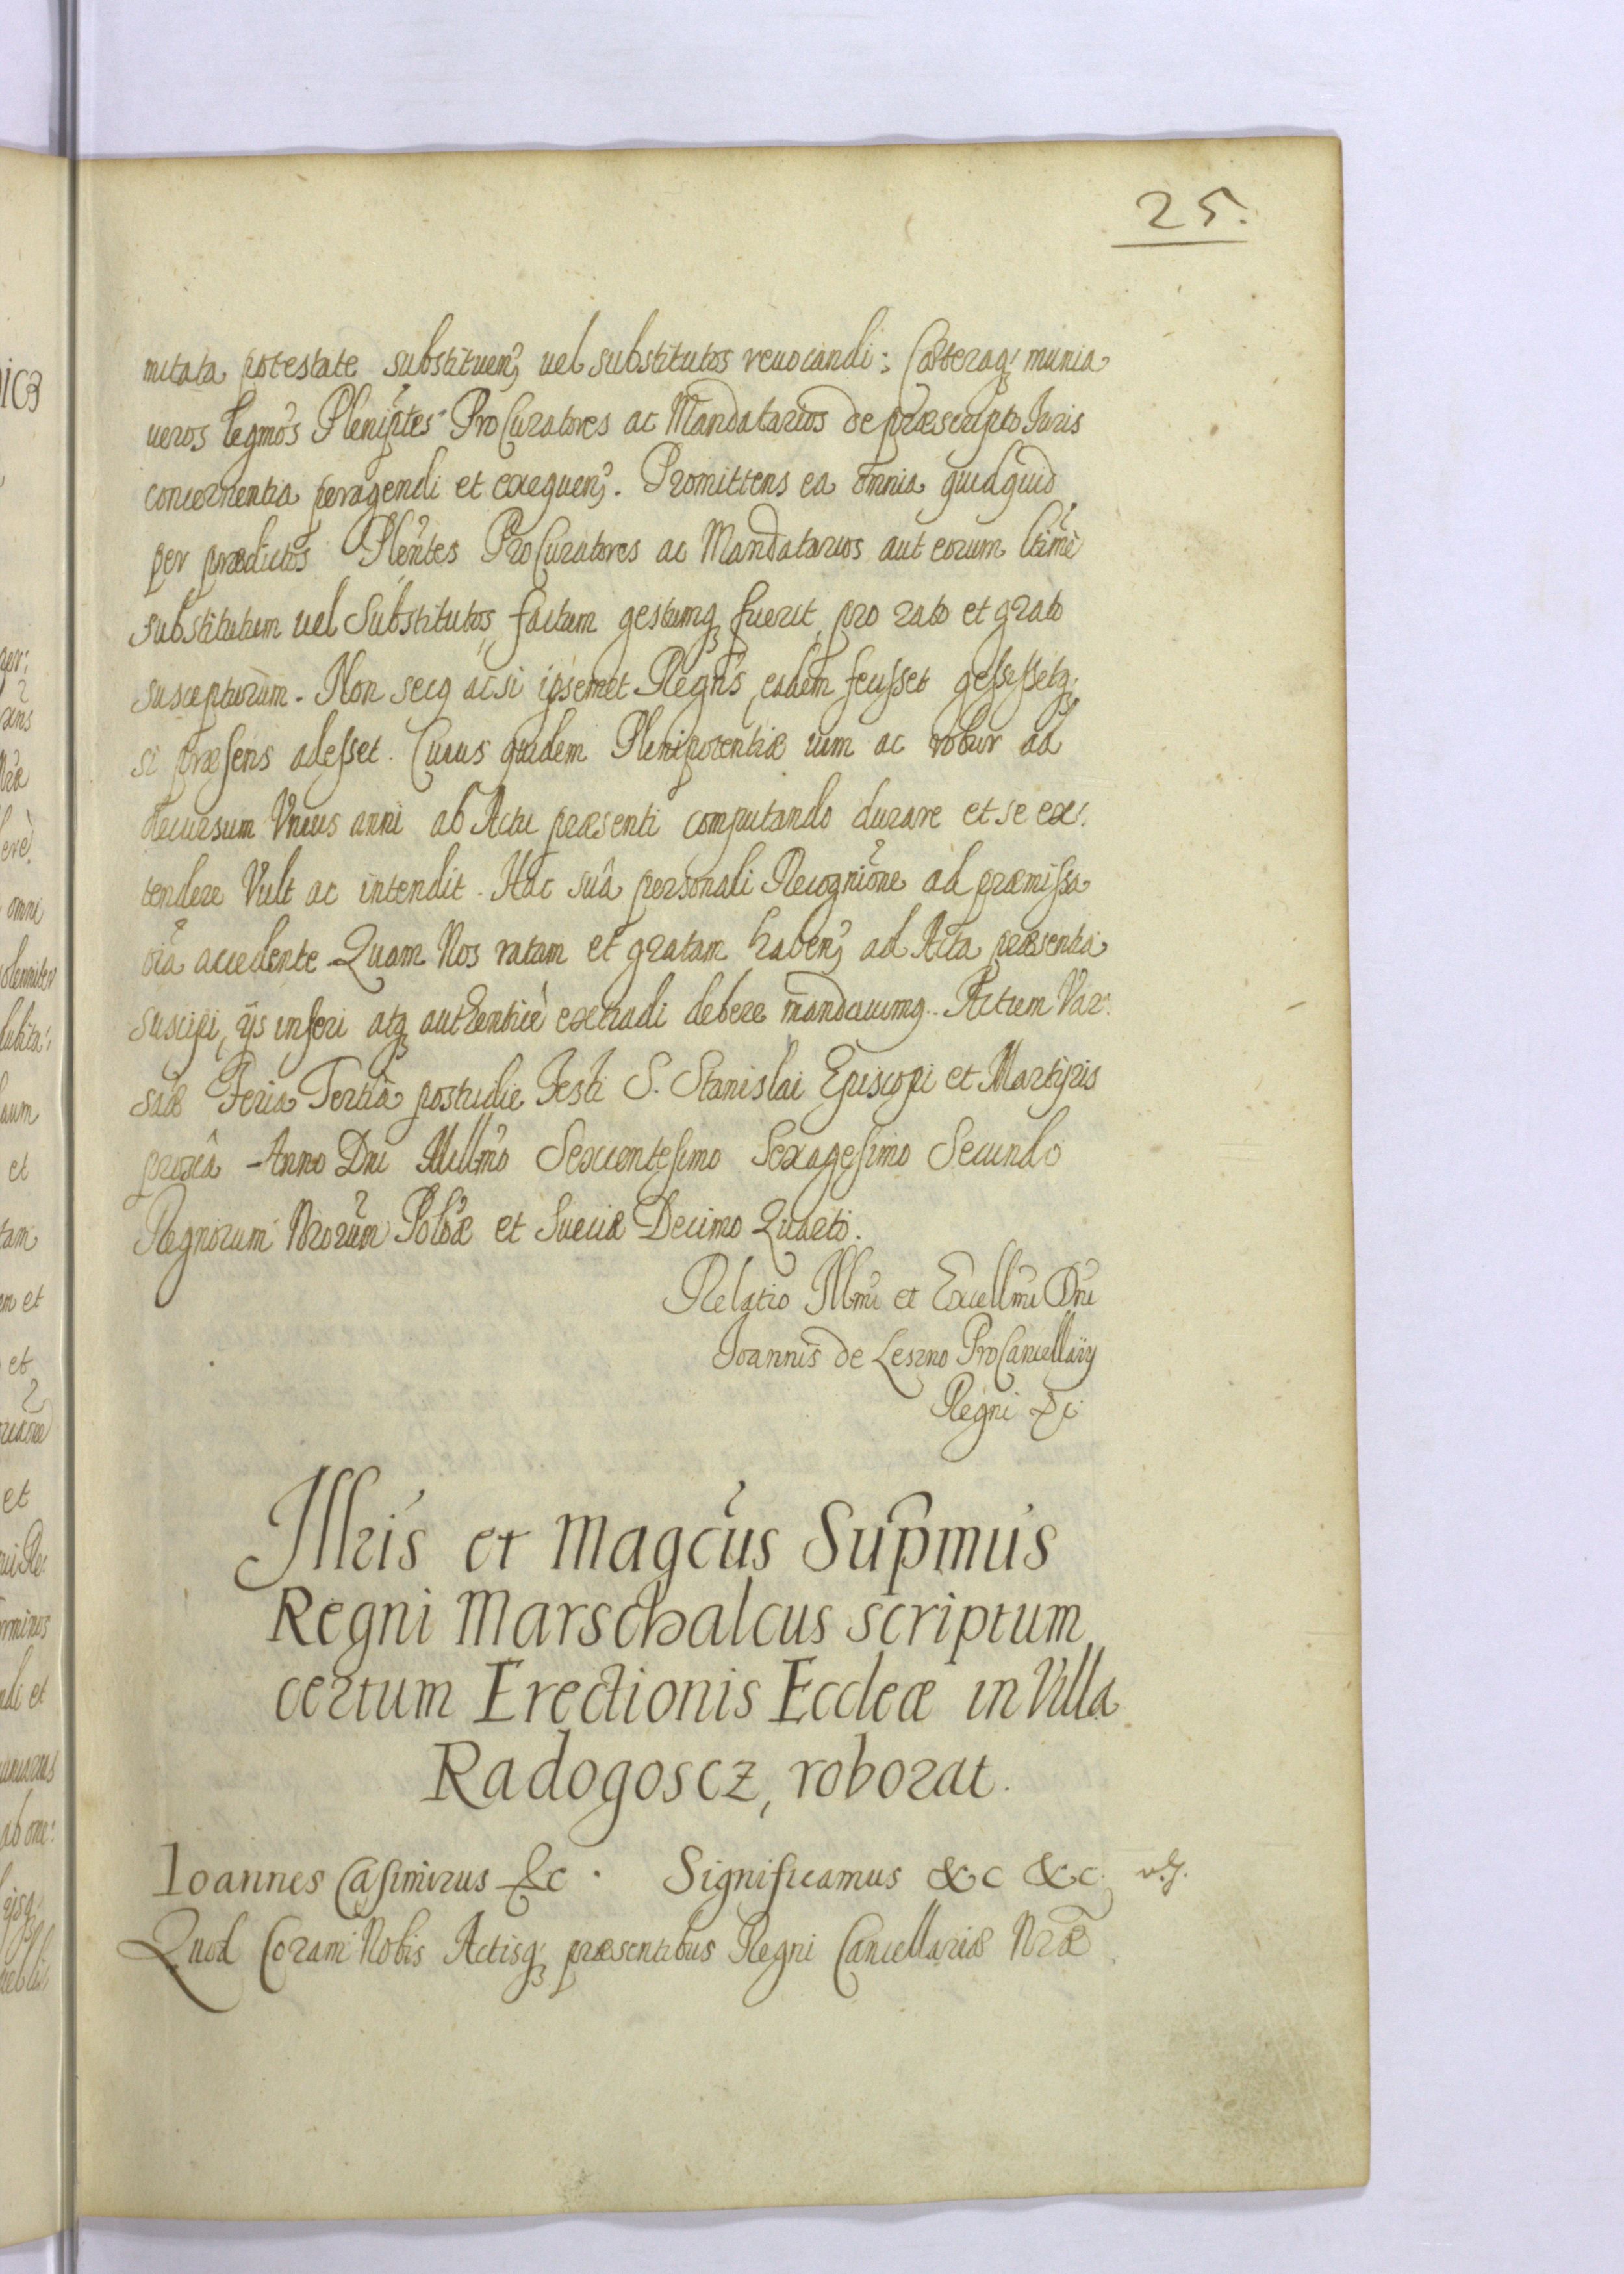 25.
mitata potestate substituen₃ uel substitutos reuocandi: Cæteraq₃ munia
ueros legmos Pleniptes ProCuratores ac Mandatarios de præscripto Iuris
concernentia peragendi et exequen₃. Promittens ea omnia quidquid
per prædictos Plentes ProCuratores ac Mandatarios aut eorum ltimè
substitutum uel Substitutos, factum gestumq₃ fuerit, pro rato et grato
suscepturum. Non secq ac si ipsemet Regns, eadem fecisset gessissetq₃
si præsens adesset. Cuius quidem Plenipotentiæ uim ac robur ad
decursum Vnius anni ab Actu præsenti computando durare et se ex:
tendere Vult ac intendit. Hac suâ personali Recognione ad præmissa
oia accedente. Quam Nos ratam et gratam haben₃ ad Acta præsentia
suscipi, ijs inseri atq₃ authenticè extradi debere mandauimq. Actum Var:
sâiæ Feria Tertia postridie Festi S. Stanislai Episcopi et Martijris
proxiâ Anno Dni Millmo Sexcentesimo Sexagesimo Secundo
Regnorum Nrorum Polôæ et Sueciæ Decimo Quarto.
Relatio Illmi et Excellmi Dni
Joannis de Leszno ProCancellarij
Regni &c
Illris et Magcus Supmus
Regni Marschalcus scriptum
certum Erectionis Eccleæ in Villa
Radogoscz, roborat.
Ioannes Casimirus &c. Significamus &c &c.
Quod Coram Nobis Actisq₃ præsentibus Regni Cancellariæ Nræ